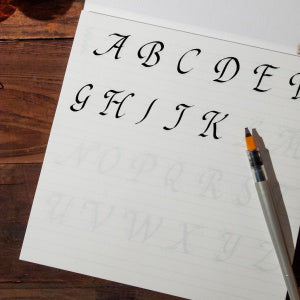 A B C D E F
G H I J K
N O P Q R S
U V W X Y Z